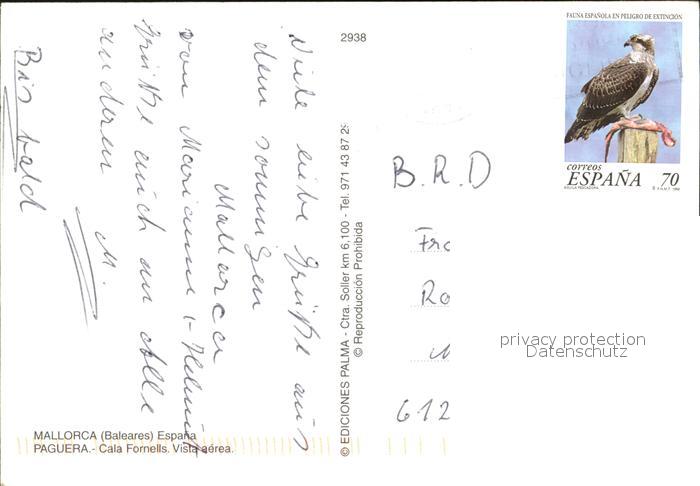 2938
FAUNA ESPAÑOLA EN PELIGRO DE EXTINCIÓN
correos
ESPAÑA 70
AGUILA PESCADORA
Viele liebe Grüße aus
dem sonnigen
Mallorca
von Marianne + Helmut
Grüße auch an alle
anderen M.
Bis bald
© EDICIONES PALMA - Ctra. Soller km 6,100 - Tel. 971 43 87 2
© Reproducción Prohibida
B.R.D
Fra
Ro
612
privacy protection
Datenschutz
MALLORCA (Baleares) España
PAGUERA.- Cala Fornells. Vista aérea.